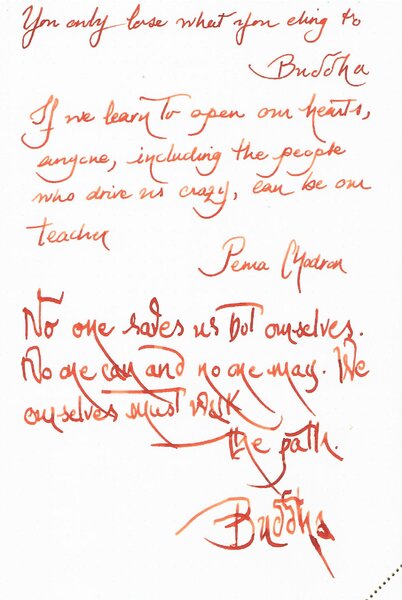 You only lose what you cling to
Buddha
If we learn to open our hearts,
anyone, including the people
who drive us crazy, can be our
teacher
Pema Chodron
No one saves us but ourselves.
No one can and no one may. We
ourselves must walk
the path.
Buddha